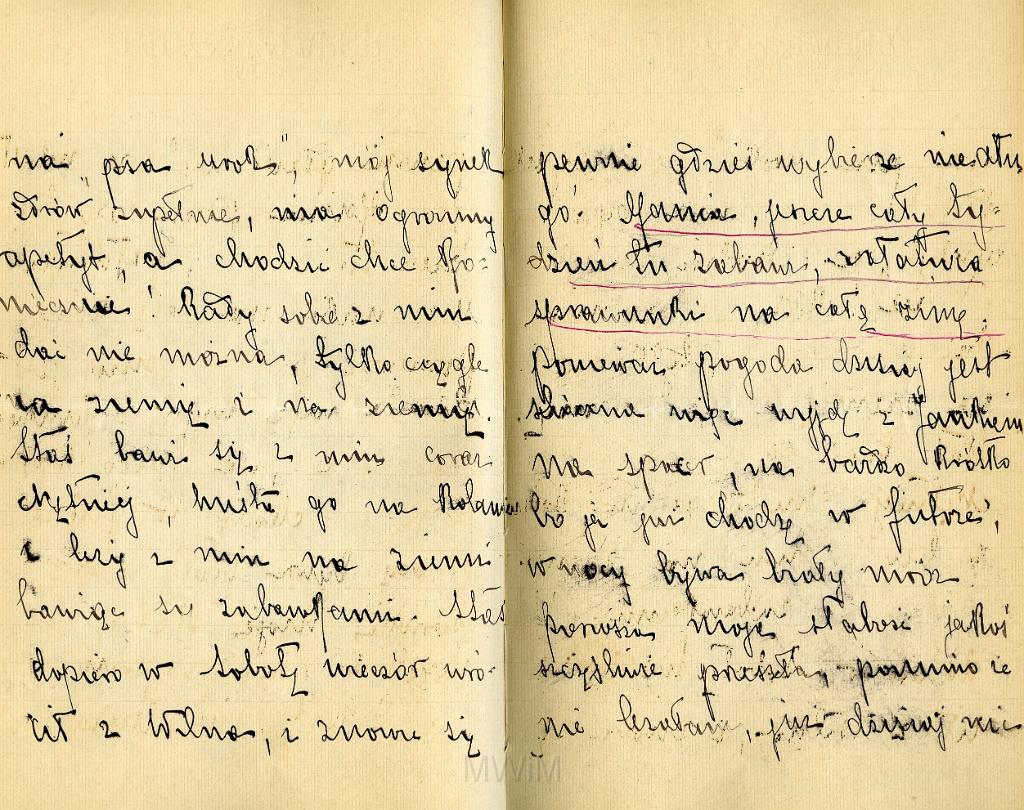 na „psa urok”, mój synek
zdrów zupełnie, ma ogromny
apetyt, a chodzić chce ko-
niecznie! Rady sobie z nim
dać nie można, tylko ciągle
na ziemię i na ziemię.
Staś bawi się z nim coraz
chętniej, huśta go na kolanie
i leży z nim na ziemi
bawiąc się zabawkami. Staś
dopiero w sobotę wieczór wró-
cił z Wilna, i znowu się
pewnie gdzieś wybierze niedłu-
go. Mania, przez cały ty-
dzień tu zabawi, załatwia
sprawunki na całą zimę.
ponieważ pogoda dzisiaj jest
śliczna więc wyjdę z Jankiem
na spacer, na bardzo krótko
bo ja już chodzę w futrze,
w nocy bywa biały mróz
pierwsza moja słabość jakoś
szczęśliwie przeszła, pomimo że
nie leżałam, już dzisiaj nic
MWiM